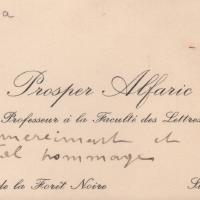 a
Prosper Alfaric
Professeur à la Faculté des Lettres
et
hommage
de la Forêt Noire